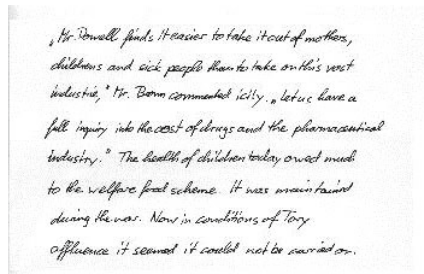 „Mr. Powell finds it easier to take it out of mothers,
childrens and sick people than to take on this vast
industrie," Mr. Bonn commented icily. „Let us have a
full inquiry into the cost of drugs and the pharmaceutical
industry." The health of children today owed much
to the welfare food scheme. It was maintained
during the war. Now in conditions of Tory
affluence it seemed it could not be carried on.